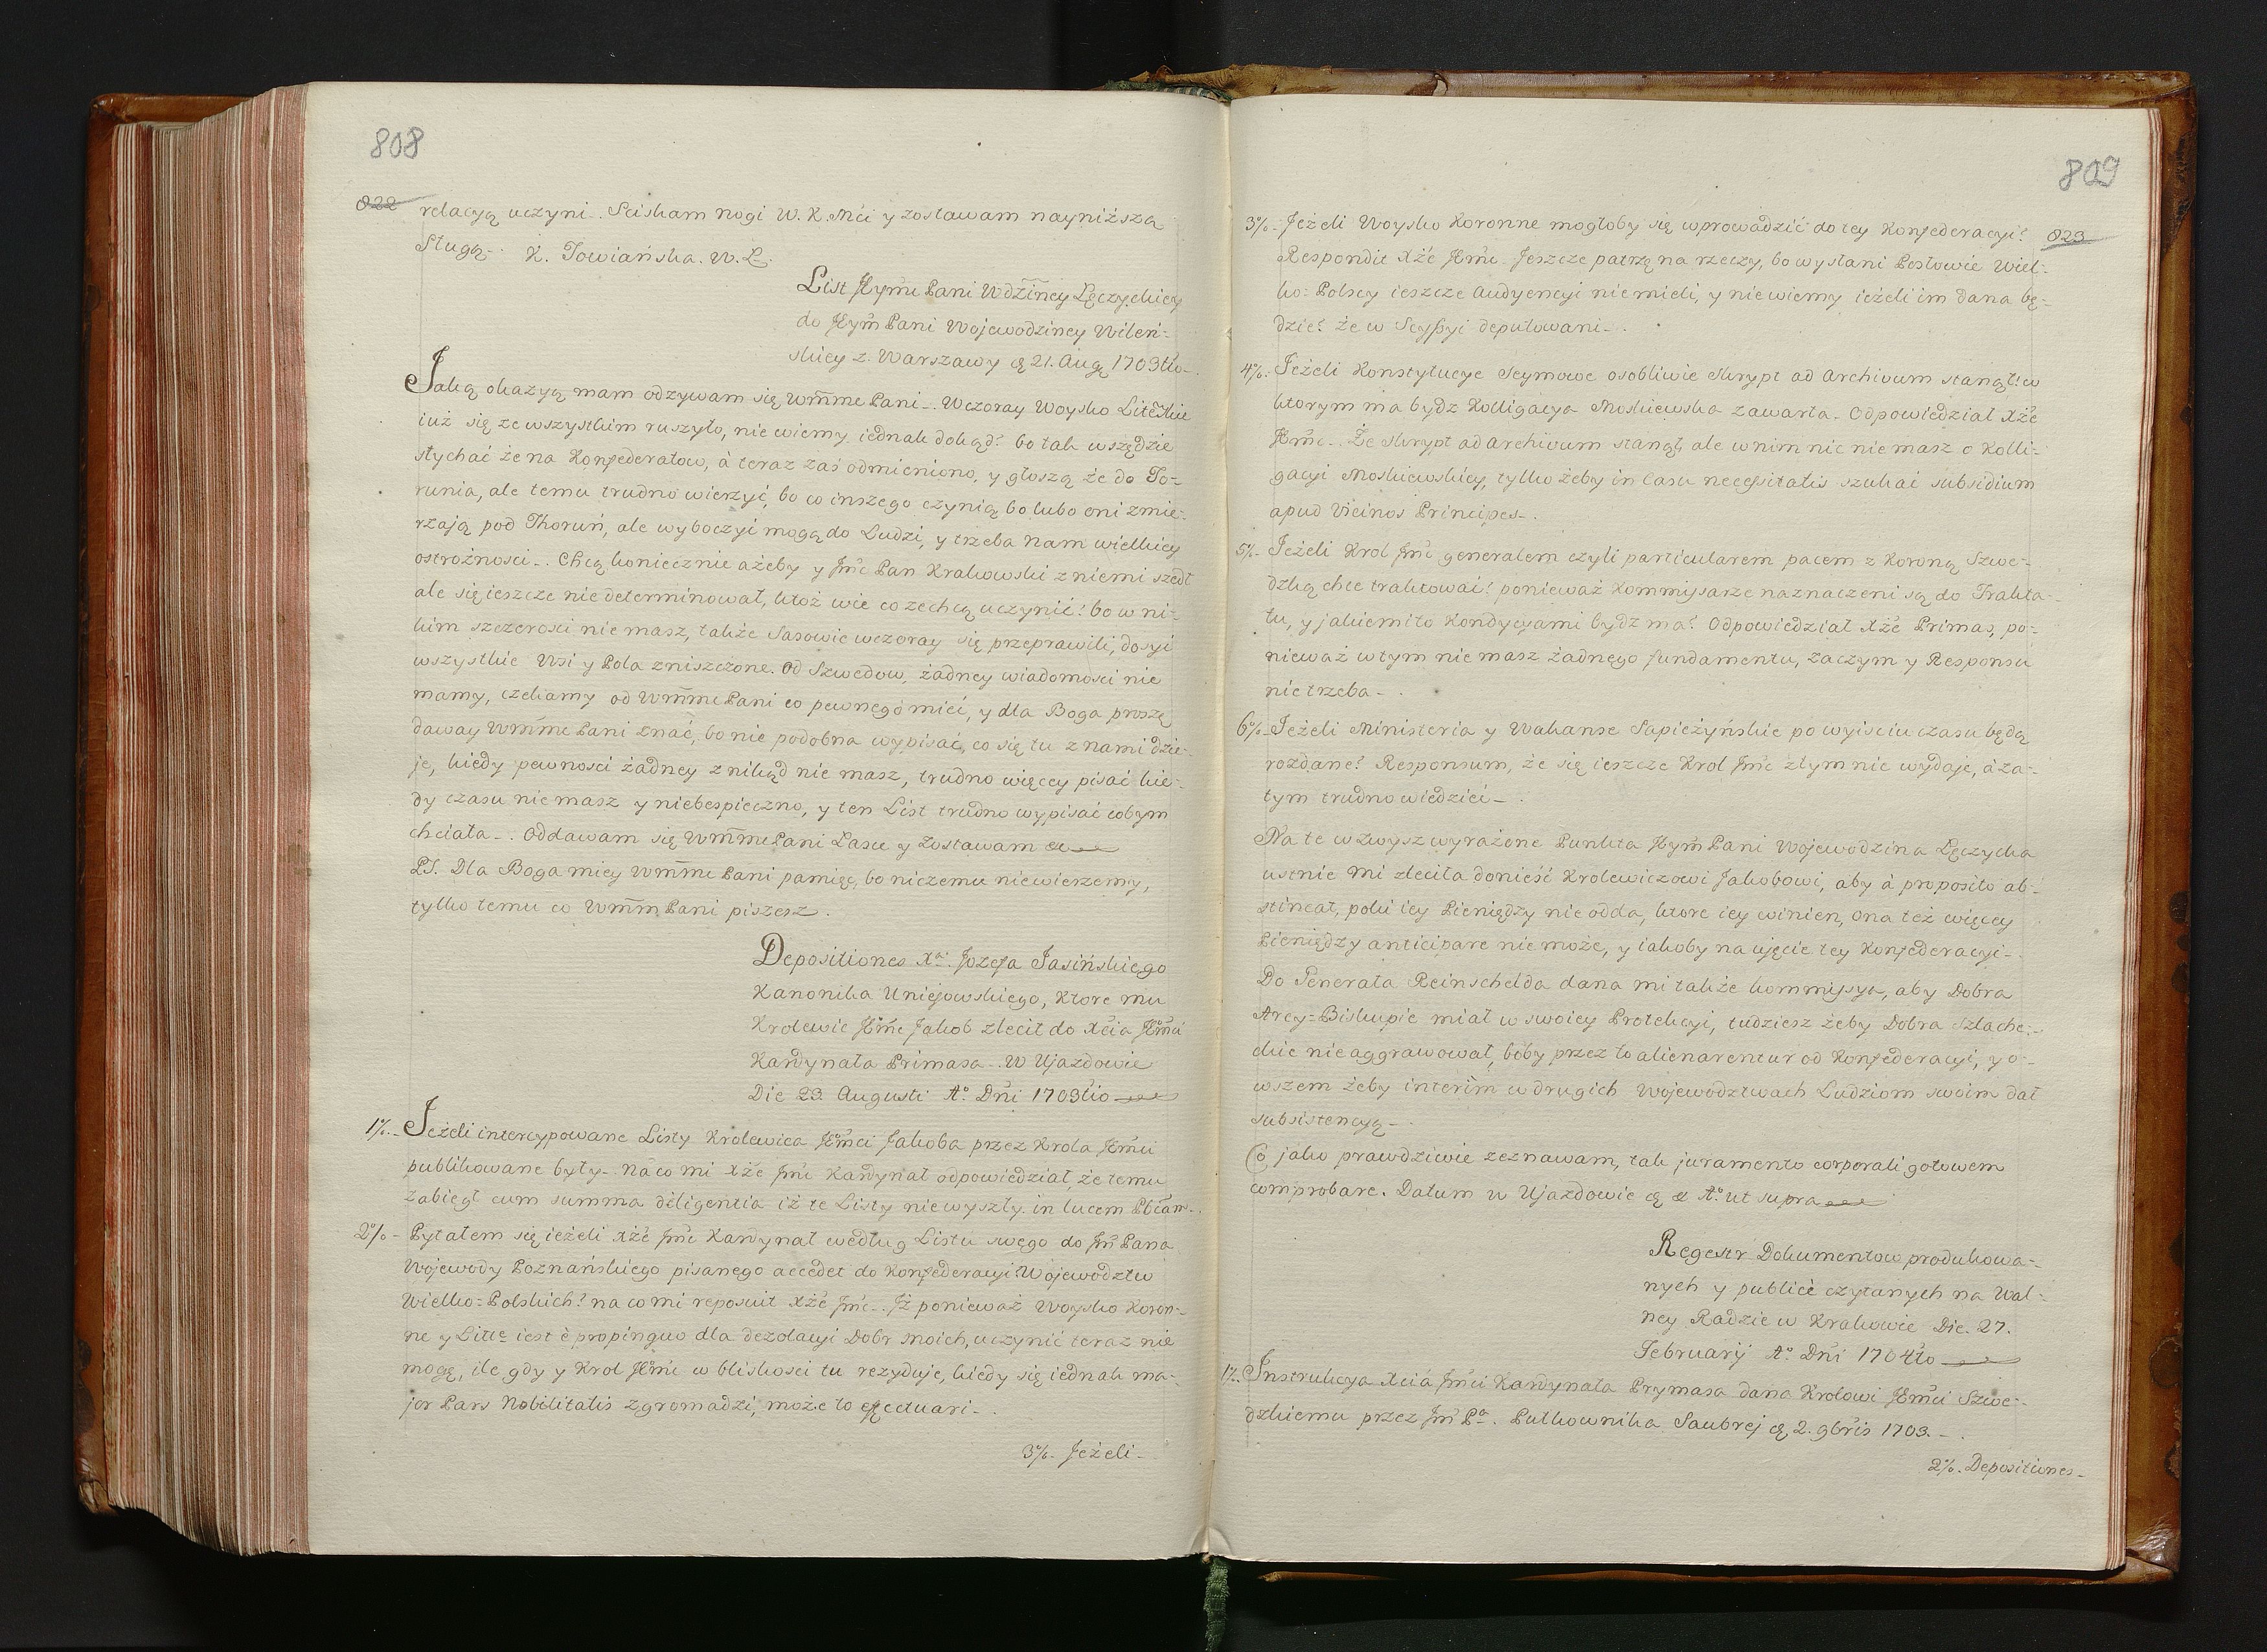 808
822
relacyą uczyni. Sciskam nogi W. K. Mći y zostawam nayniższą
Sługą. K. Towiańska. W. Ł.
List Jeym̃ Pani Wdzin̄ey Łęczyckiey
do Jeym̃ Pani Wojewodziney Wileń-
skiey z Warszawy d 21. Aug 1703tio
Jaką okazyą mam odzywam się Wm̃me Pani. Wczoray Woysko Litẽskie
iuż się ze wszystkim ruszyło, nie wiemy iednak dokąd? bo tak wszędzie
słychać że na Konfederatow, à teraz zaś odmieniono, y głoszą że do To-
runia, ale temu trudno wierzyć, bo co inszego czynią, bo lubo oni zmie-
rzają pod Thoruń, ale wyboczyć mogą do Ludzi, y trzeba nam wielkiey
ostrożnosci. Chcą koniecznie ażeby y Jm̃c Pan Krakowski z niemi szedł
ale się ieszcze nie determinował, ktoż wie co zechcą uczynić? bo w ni-
kim szczerosci nie masz, także Sasowie wczoray się przeprawili, dosyć
wszystkie Wsi y Pola zniszczone. Od Szwedow, żadney wiadomosci nie
mamy, czekamy od Wm̃me Pani co pewnego mieć, y dla Boga proszę
daway Wm̃me Pani znać, bo nie podobna wypisać, co się tu z nami dzie-
je, kiedy pewnosci żadney z nikąd nie masz, trudno więcey pisać kie-
dy czasu nie masz y niebespieczno, y ten List trudno wypisać cobym
chciała. Oddawam się Wm̃me Pani Łasce y zostawam &c
PS. Dla Boga miey Wm̃me Pani pamięć, bo niczemu nie wierzemy,
tylko temu co Wm̃m Pani piszesz.
Depositiones Xa. Jozefa Jasińskiego
Kanonika Uniejowskiego, Ktore mu
Krolewic Jeḿc Jakob zlecił do Xcia Jeḿci
Kardynała Primasa. W Ujazdowie
Die 23. Augusti A.o Dñi 1703tio
1o/o. Jeżeli intercypowane Listy Krolewica Jeḿci Jakoba przez Krola Jeḿci
publikowane były. Na co mi Xże Jm̃c Kardynał odpowiedział, że temu
zabiegł cum summa diligentia iż te Listy nie wyszły in lucem Pblcam.
2o/o - Pytałem się ieżeli Xże Jm̃c Kardynał według Listu swego do Jm̃ Pana
Wojewody Poznańskiego pisanego accedet do Konfederacyi Wojewodztw
Wielko-Polskich? na co mi reposuit Xże Jm̃c. Iż ponieważ Woysko Koron-
ne y Litte iest è propinquo dla dezolacyi Dobr moich, uczynić teraz nie
mogę, ile gdy y Krol Jeḿc w bliskosci tu rezyduje, kiedy się iednak ma-
jor Pars Nobilitatis zgromadzi, może to effectuari.
3o/o. Jeżeli
809
823
3o/o. Jeżeli Woysko Koronne mogłoby się wprowadzić do tey Konfederacyi?
Respondit Xże Jeḿc. Jeszcze patrzą na rzeczy, bo wysłani Posłowie Wiel-
ko-Polscy ieszcze Audyencyi nie mieli, y nie wiemy ieżeli im dana bę-
dzie? że w Scyssyi deputowani.
4o/o. Jeżeli Konstytucye Seymowe osobliwie Skrypt ad Archivum stanął? w
ktorym ma bydz Kolligacya Moskiewska zawarta. Odpowiedział Xże
Jeḿc. Że skrypt ad Archivum stanął, ale w nim nic nie masz o Kolli-
gacyi Moskiewskiey, tylko żeby in casu necessitatis szukać subsidium
apud Vicinos Principes.
5o/o. Jeżeli Krol Jm̃c generalem czyli particularem pacem z Koroną Szwe-
dzką chce traktować? ponieważ Kommissarze naznaczeni są do Trakta-
tu, y jakiemito Kondycyami bydz ma? Odpowiedział Xże Primas, po-
nieważ w tym nie masz żadnego fundamentu, zaczym y Responsu
nie trzeba.
6o/o. Jeżeli Ministeria y Wakanse Sapieżyńskie po wyisciu czasu będą
rozdane? Responsum, że się ieszcze Krol Jm̃c z tym nie wydaje, à za-
tym trudno wiedzieć.
Na te wzwysz wyrażone Punkta Jeym̃ Pani Wojewodzina Łęczycka
ustnie mi zleciła donieść Krolewiczowi Jakobowi, aby à proposito ab-
stineat, poki iey Pieniędzy nie odda, ktore iey winien, ona też więcey
Pieniędzy anticipare nie może, y iakoby na ujęcie tey Konfederacyi.
Do Generała Reinschelda dana mi także kommissya, aby Dobra
Arcy-Biskupie miał w swoiey Protekcyi, tudziesz żeby Dobra Szlache-
ckie nie aggrawował, boby przez to alienarentur od Konfederacyi, y o-
wszem żeby interim w drugich Wojewodztwach Ludziom swoim dał
subsistencyą.
Co jako prawdziwie zeznawam, tak juramento corporali gotowem
comprobare. Datum w Ujazdowie d & A.o ut supra
Regestr Dokumentow produkowa-
nych y publicè czytanych na Wal-
ney Radzie w Krakowie Die. 27.
Februarij A.o Dñi 1704to
1o/o. Instrukcya Xcia Jm̃ci Kardynała Prymasa dana Krolowi Jeḿci Szwe-
dzkiemu przez Jm̃ Pa. Pułkownika Saubrej d, 2. 9bris 1703.
2o/o. Depositiones